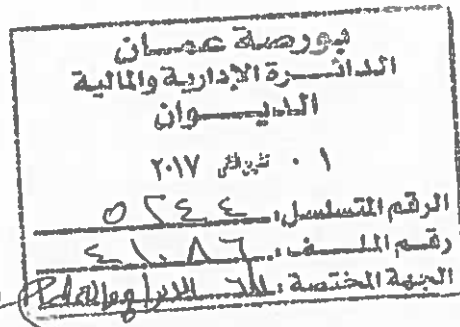 بورصة عمان
الدائرة الإدارية والمالية
الديوان
٠١ تشرين الثاني ٢٠١٧
الرقم المتسلسل: ٥٢٤٤
رقم الملف: ٤١٠٨٦
الجهة المختصة: